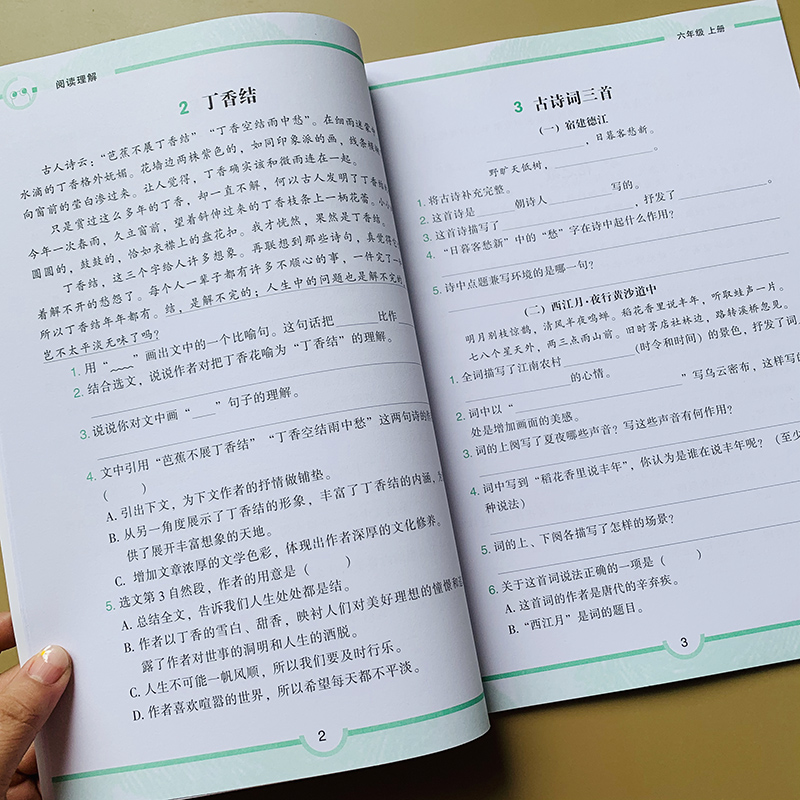 阅读理解
2 丁香结
古人诗云：“芭蕉不展丁香结”“丁香空结雨中愁”。在细雨迷蒙中，
水滴的丁香格外妩媚。花墙边两株紫色的，如同印象派的画，线条模糊
向窗前的莹白渗过来。让人觉得，丁香确实该和微雨连在一起。
只是赏过这么多年的丁香，却一直不解，何以古人发明了丁香结
今年一次春雨，久立窗前，望着斜伸过来的丁香枝条上一柄花蕾。小小
圆圆的，鼓鼓的，恰如衣襟上的盘花扣。我才恍然，果然是丁香结。
丁香结，这三个字给人许多想象。再联想到那些诗句，真觉得它
着解不开的愁怨了。每个人一辈子都有许多不顺心的事，一件完了一
所以丁香结年年都有。结，是解不完的；人生中的问题也是解不完的，
岂不太平淡无味了吗？
1. 用“﹏﹏”画出文中的一个比喻句。这句话把______比作
2. 结合选文，说说作者对把丁香花喻为“丁香结”的理解。
3. 说说你对文中画“___”句子的理解。
4. 文中引用“芭蕉不展丁香结”“丁香空结雨中愁”这两句诗的作
（ ）
A. 引出下文，为下文作者的抒情做铺垫。
B. 从另一角度展示了丁香结的形象，丰富了丁香结的内涵，为
供了展开丰富想象的天地。
C. 增加文章浓厚的文学色彩，体现出作者深厚的文化修养。
5. 选文第3自然段，作者的用意是（ ）
A. 总结全文，告诉我们人生处处都是结。
B. 作者以丁香的雪白、甜香，映衬人们对美好理想的憧憬和
露了作者对世事的洞明和人生的洒脱。
C. 人生不可能一帆风顺，所以我们要及时行乐。
D. 作者喜欢喧嚣的世界，所以希望每天都不平淡。
2
六年级 上册
3 古诗词三首
（一）宿建德江
____________，日暮客愁新。
野旷天低树，____________。
1. 将古诗补充完整。
2. 这首诗是______朝诗人________写的。
3. 这首诗描写了____________________，抒发了____________。
4. “日暮客愁新”中的“愁”字在诗中起什么作用？
5. 诗中点题兼写环境的是哪一句？
（二）西江月·夜行黄沙道中
明月别枝惊鹊，清风半夜鸣蝉。稻花香里说丰年，听取蛙声一片。
七八个星天外，两三点雨山前。旧时茅店社林边，路转溪桥忽见。
1. 全词描写了江南农村__________（时令和时间）的景色，抒发了词人
____________的心情。
2. 词中以“____________________”写乌云密布，这样写的
处是增加画面的美感。
3. 词的上阕写了夏夜哪些声音？写这些声音有何作用？
4. 词中写到“稻花香里说丰年”，你认为是谁在说丰年呢？（至少
种说法）
5. 词的上、下阕各描写了怎样的场景？
6. 关于这首词说法正确的一项是（ ）
A. 这首词的作者是唐代的辛弃疾。
B. “西江月”是词的题目。
3